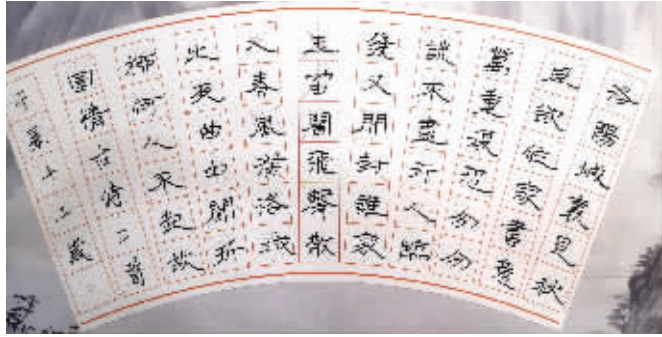 洛陽城裏見秋
風欲作家書意
萬重復恐匆匆
說不盡行人臨
發又開封誰家
玉笛闇飛聲散
入春風滿洛城
此夜曲中聞折
柳何人不起故
園情古詩二首
十二歲